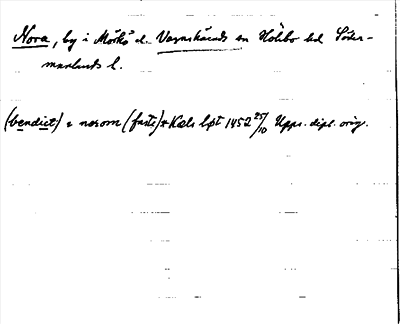 Nora, by i Mörkö el. Vagnhärads sn Hölebo hd Söder-
manlands l.
(bendict) a norom (faste) Kals lpt 1452 25/10 Upps. dipl. orig.